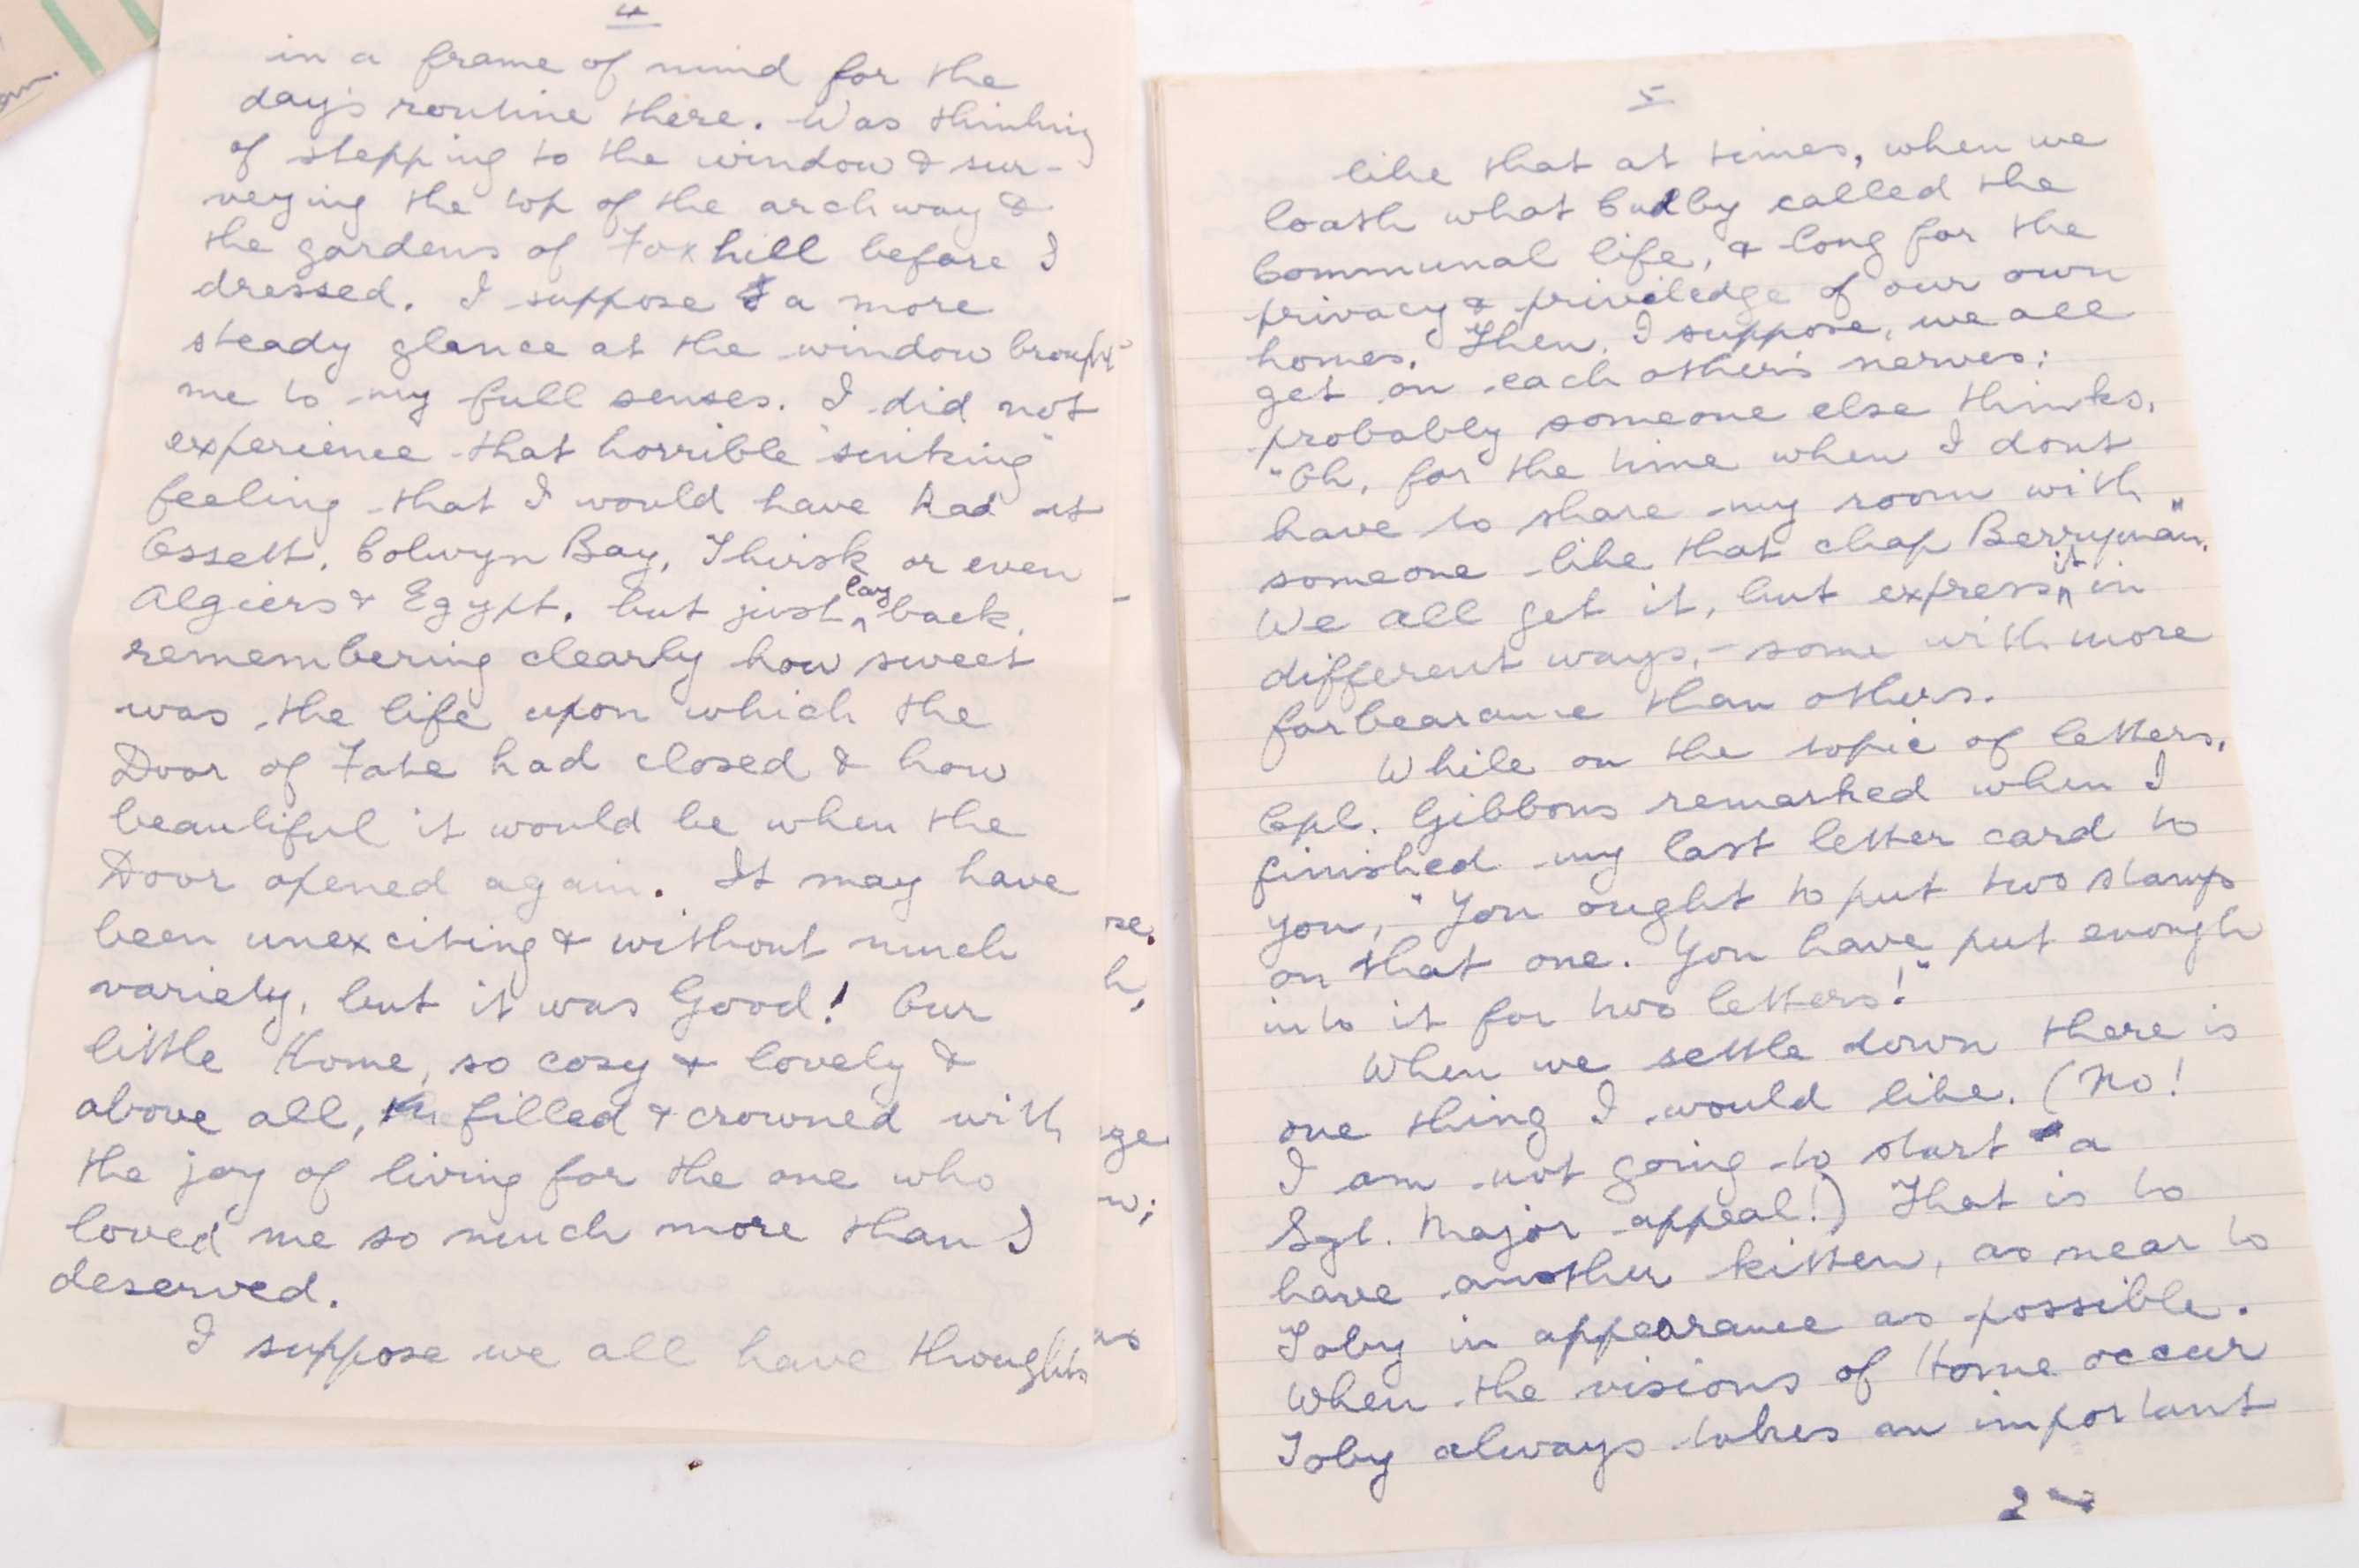 4
in a frame of mind for the
day's routine there. Was thinking
of stepping to the window & sur-
veying the top of the archway &
the gardens of Foxhill before I
dressed. I suppose a more
steady glance at the window brought
me to my full senses. I did not
experience that horrible "sinking"
feeling that I would have had at
Ossett, Colwyn Bay, Thirsk or even
Algiers & Egypt, but just lay back,
remembering clearly how sweet
was the life upon which the
Door of Fate had closed & how
beautiful it would be when the
Door opened again. It may have
been unexciting & without much
variety, but it was Good! Our
little Home, so cosy & lovely &
above all, filled & crowned with
the joy of living for the one who
loved me so much more than I
deserved.
I suppose we all have thoughts
re.
h,
ge
w;
as
5
like that at times, when we
loath what Cudby called the
Communal life, & long for the
privacy & priviledge of our own
homes. Then, I suppose, we all
get on each other's nerves:
probably someone else thinks,
"Oh, for the time when I dont
have to share my room with
someone like that chap Berryman".
We all get it, but express it in
different ways, - some with more
forbearance than others.
While on the topic of letters,
Cpl. Gibbons remarked when I
finished my last letter card to
you, "You ought to put two stamps
on that one. You have put enough
into it for two letters!"
When we settle down there is
one thing I would like. (No!
I am not going to start a
Sgt. Major appeal!) That is to
have another kitten, as near to
Toby in appearance as possible.
When the visions of Home occur
Toby always takes an important